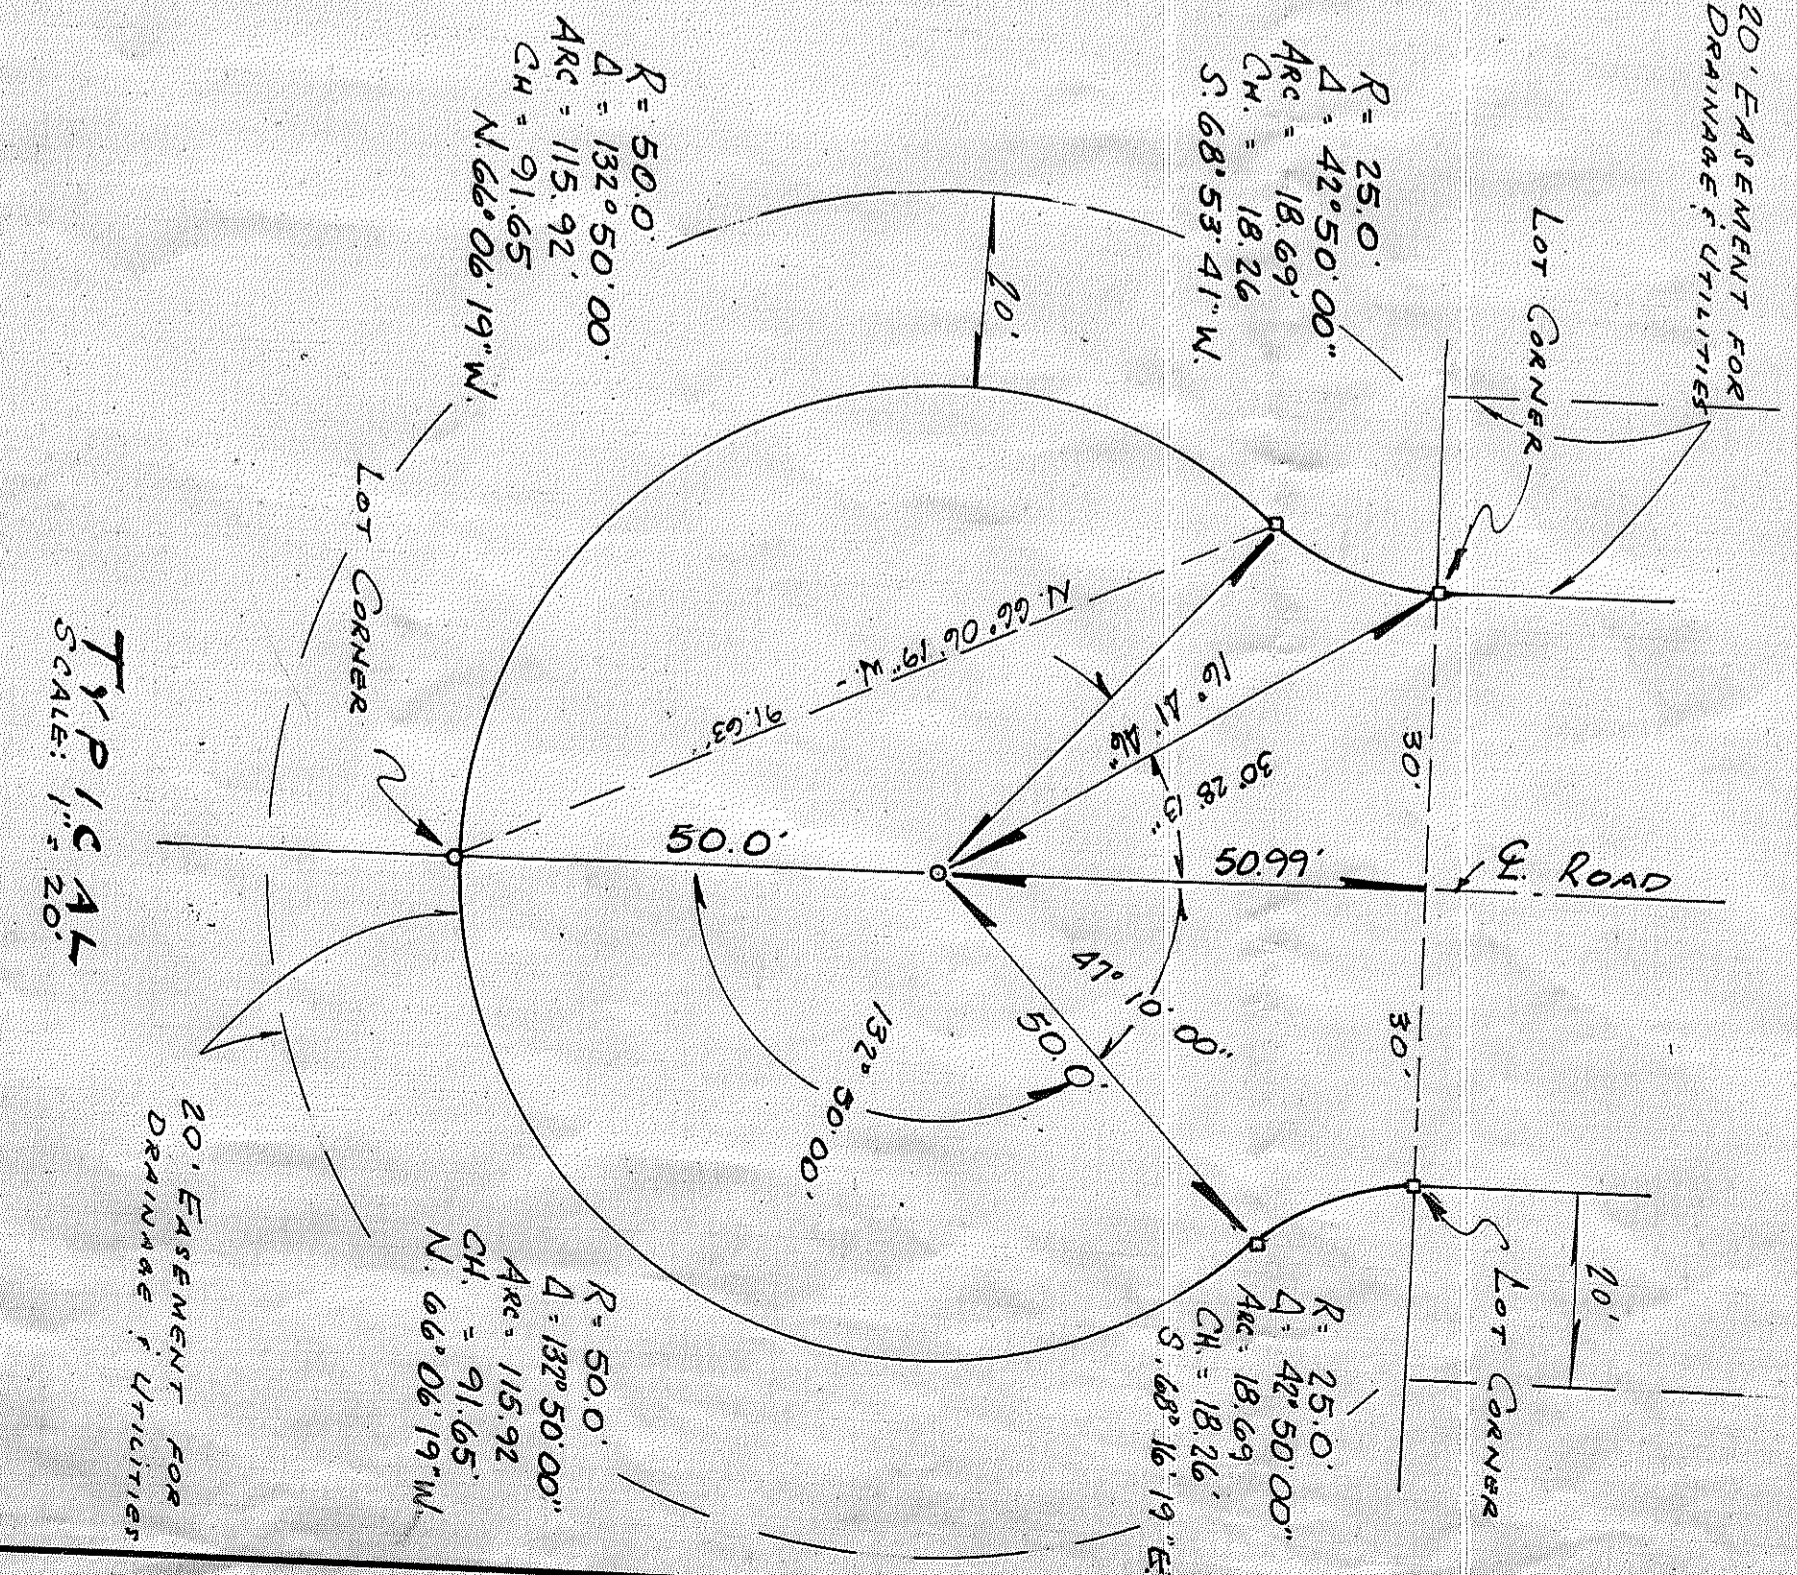 20' EASEMENT FOR
DRAINAGE & UTILITIES
LOT CORNER
R= 25.0'
Δ = 42°50'00"
ARC = 18.69'
CH. = 18.26
S. 68°53'41" W.
R= 50.0'
Δ = 132°50'00'
ARC = 115.92'
CH = 91.65
N. 66°06'19" W.
20'
30'
30'
℄ ROAD
50.99'
N. 66°06'19" W. -
91.63'
16° 41' 46"
30° 28' 13"
47° 10' 00"
50.0'
50.0'
132° 50'00'
LOT CORNER
LOT CORNER
20'
R= 25.0'
Δ= 42°50'00"
ARC= 18.69
CH. = 18.26'
S. 68°16'19" E.
R= 50.0'
Δ= 132°50'00"
ARC= 115.92
CH. = 91.65'
N. 66°06'19" W.
20' EASEMENT FOR
DRAINAGE & UTILITIES
TYPICAL
SCALE: 1"= 20'